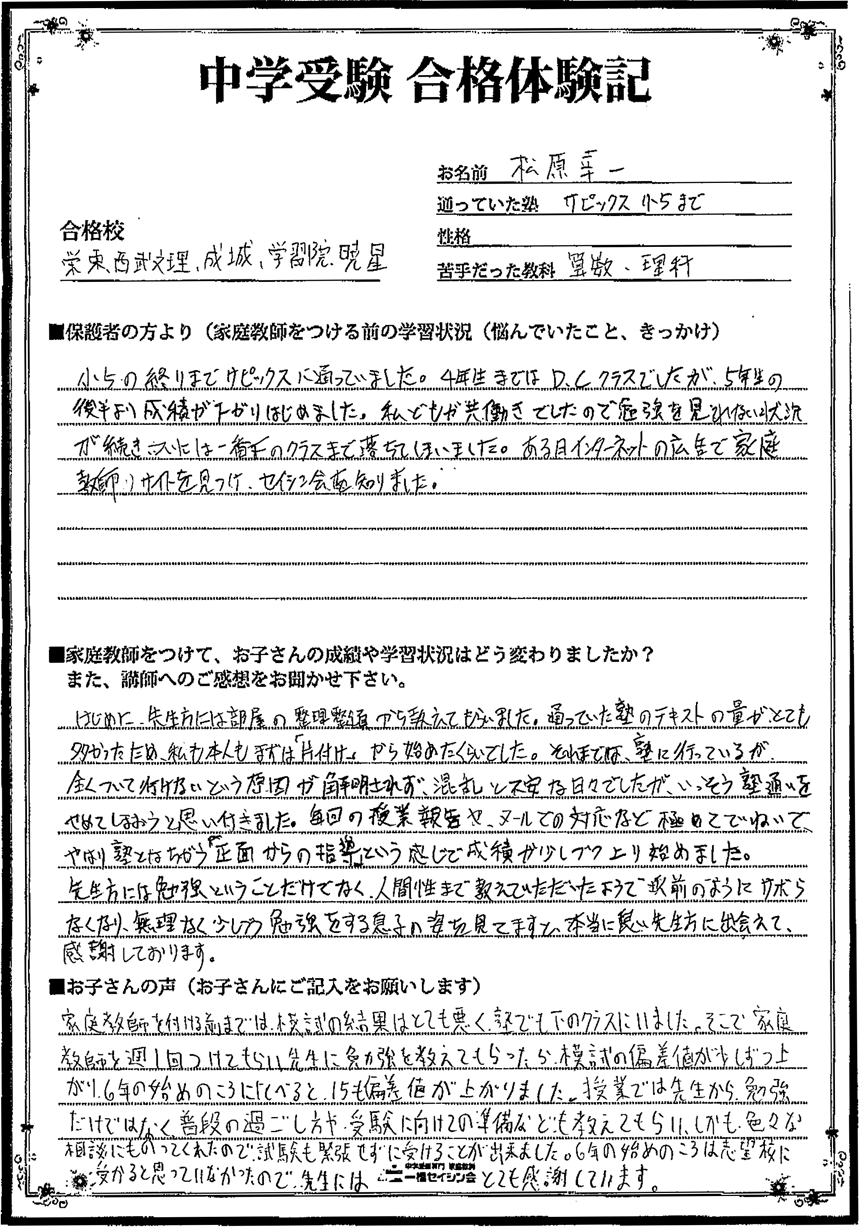 中学受験 合格体験記
お名前 松原幸一
通っていた塾 サピックス 小5まで
合格校
性格
栄東、西武文理、成城、学習院、暁星
苦手だった教科 算数、理科
■保護者の方より（家庭教師をつける前の学習状況（悩んでいたこと、きっかけ）
小5の終りまでサピックスに通っていました。4年生まではD、Cクラスでしたが、5年生の
後半より成績が下がりはじめました。私どもが共働きでしたので勉強を見とれない状況
が続きついには一番下のクラスまで落ちてしまいました。ある日インターネットの広告で家庭
教師のサイトを見つけ、セイシン会を知りました。
■家庭教師をつけて、お子さんの成績や学習状況はどう変わりましたか？
また、講師へのご感想をお聞かせ下さい。
はじめに、先生方には部屋の整理整頓から教えてもらいました。通っていた塾のテキストの量がとても
多かったため、私も本人もまずは「片付け」から始めたくらいでした。それまでは、塾に行っているが、
全くついて行けないという原因が解明されず、混乱と不安な日々でしたが、いっそう塾通いを
やめてしまおうと思い付きました。毎回の授業報告や、メールでの対応など極めてていねいで、
やはり塾とはちがう「正面からの指導」という感じで成績が少しづつ上り始めました。
先生方には勉強ということだけでなく、人間性まで教えていただいたようで以前のようにサボら
なくなり、無理なく少しづつ勉強をする息子の姿を見てますと、本当に良い先生方に出会えて、
感謝しております。
■お子さんの声（お子さんにご記入をお願いします）
家庭教師を付ける前までは、模試の結果はとても悪く、塾でも下のクラスにいました。そこで家庭
教師を週1回つけてもらい、先生に勉強を教えてもらったら、模試の偏差値が少しずつ上
がり、6年の始めのころにくらべると、15も偏差値が上がりました。授業では先生から、勉強
だけではなく、普段の過ごし方や、受験に向けての準備なども教えてもらい、しかも、色々な
相談にものってくれたので、試験も緊張せずに受けることが出来ました。6年の始めのころは志望校に
受かると思っていなかったので、先生には とても感謝しています。
中学受験専門 家庭教師
一橋セイシン会